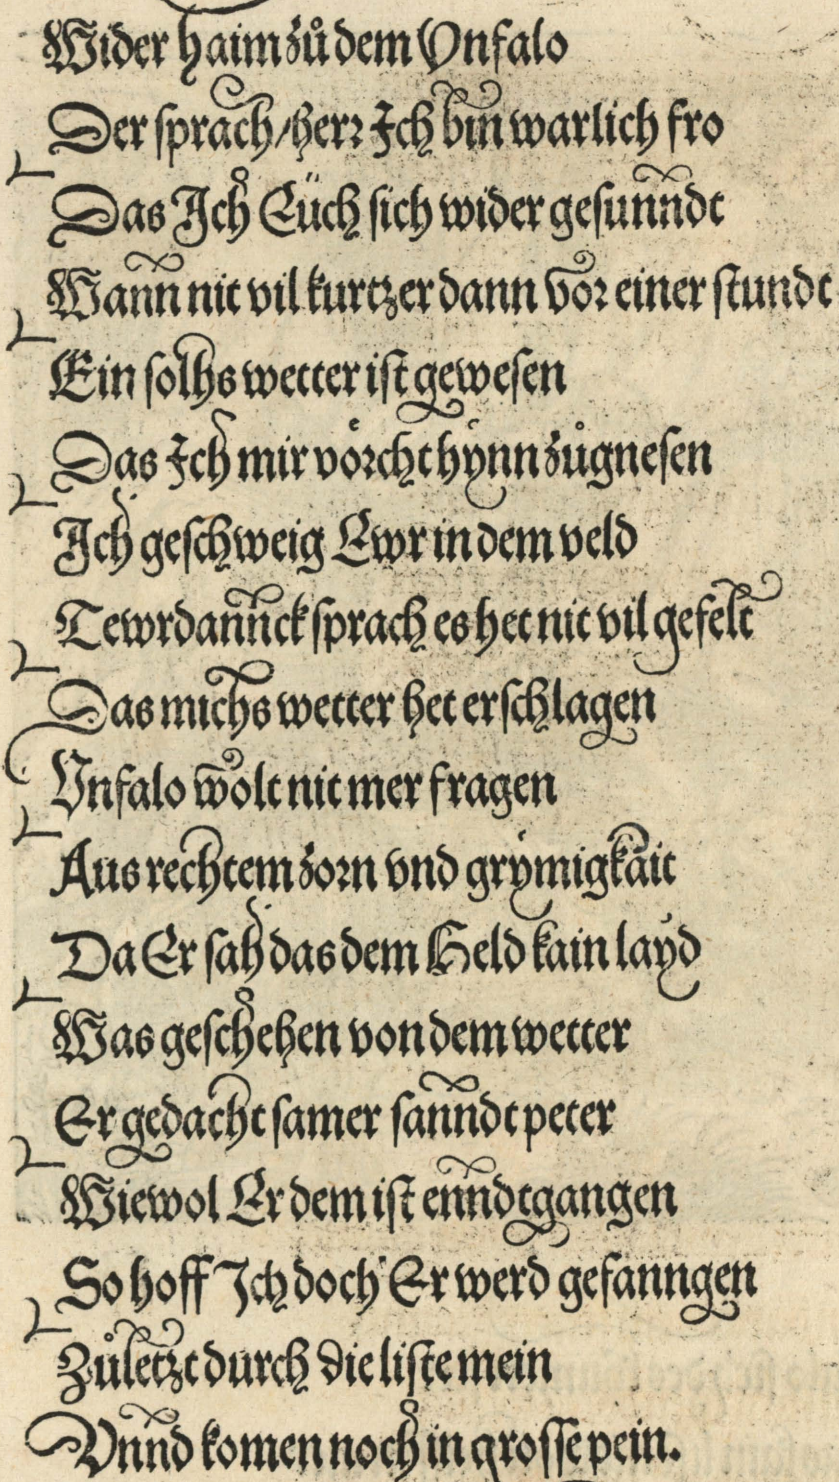 Wider haim zů dem Vnfalo
Der sprach/herr Ich bin warlich fro
Das Ich Eüch sich wider gesunndt
Wann nit vil kurtzer dann vor einer stundt
Ein solhs wetter ist gewesen
Das Ich mir vörcht hynn zůgnesen
Ich geschweig Ewr in dem veld
Tewrdannck sprach es het nit vil gefelt
Das michs wetter het erschlagen
Vnfalo wolt nit mer fragen
Aus rechtem zorn vnd grymigkait
Da Er sah das dem Held kain layd
Was geschehen von dem wetter
Er gedacht samer sanndt peter
Wiewol Er dem ist enndtgangen
So hoff Ich doch Er werd gefanngen
Zůletzt durch die liste mein
Vnnd komen noch in grosse pein.